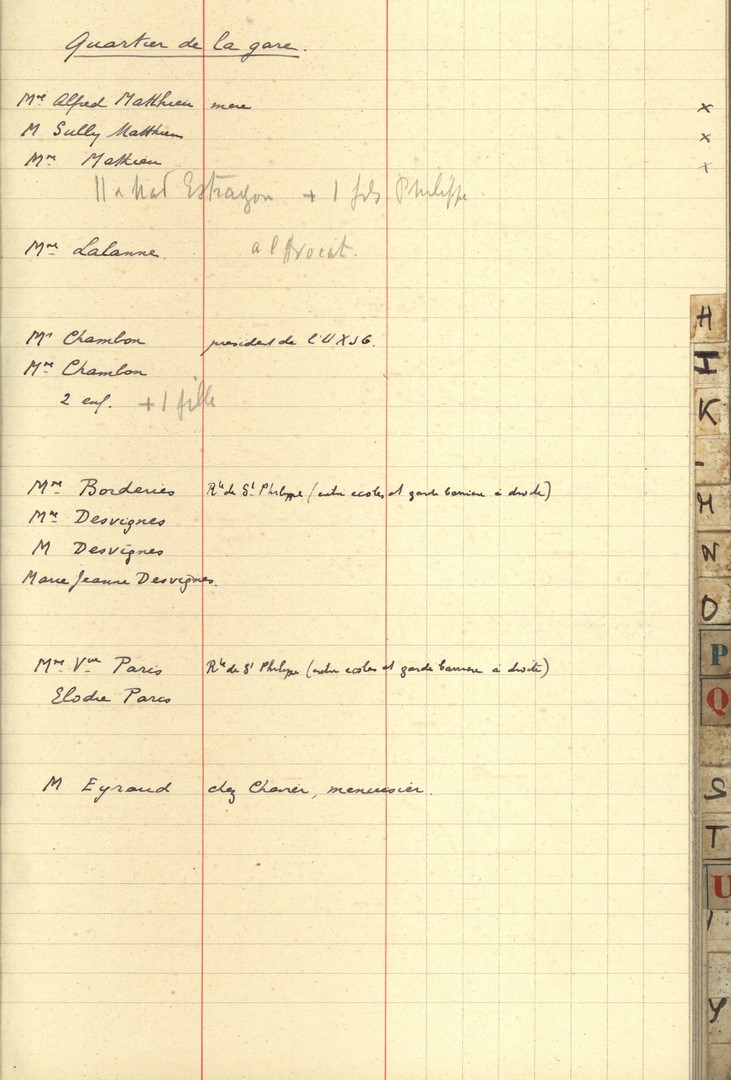 Quartier de la gare.
Mme Alfred Matthieu mere x
M Sully Matthieu x
Mme Mathieu x
Estragon + 1 fils Philippe
Mme Lalanne. a l'Avocat.
Mr Chambon président de l'U X J G.
Mme Chambon
2 enf. + 1 fille
Mme Borderies Rte de St Philippe (entre ecoles et garde barriere à droite)
Mme Desvignes
M Desvignes
Marie Jeanne Desvignes.
Mme Vve Paris Rte de St Philippe (entre ecoles et garde barriere à droite)
Elodie Paris
M Eyraud chez Charrier, menuisier.
H
I
K
M
N
O
P
Q
S
T
U
Y